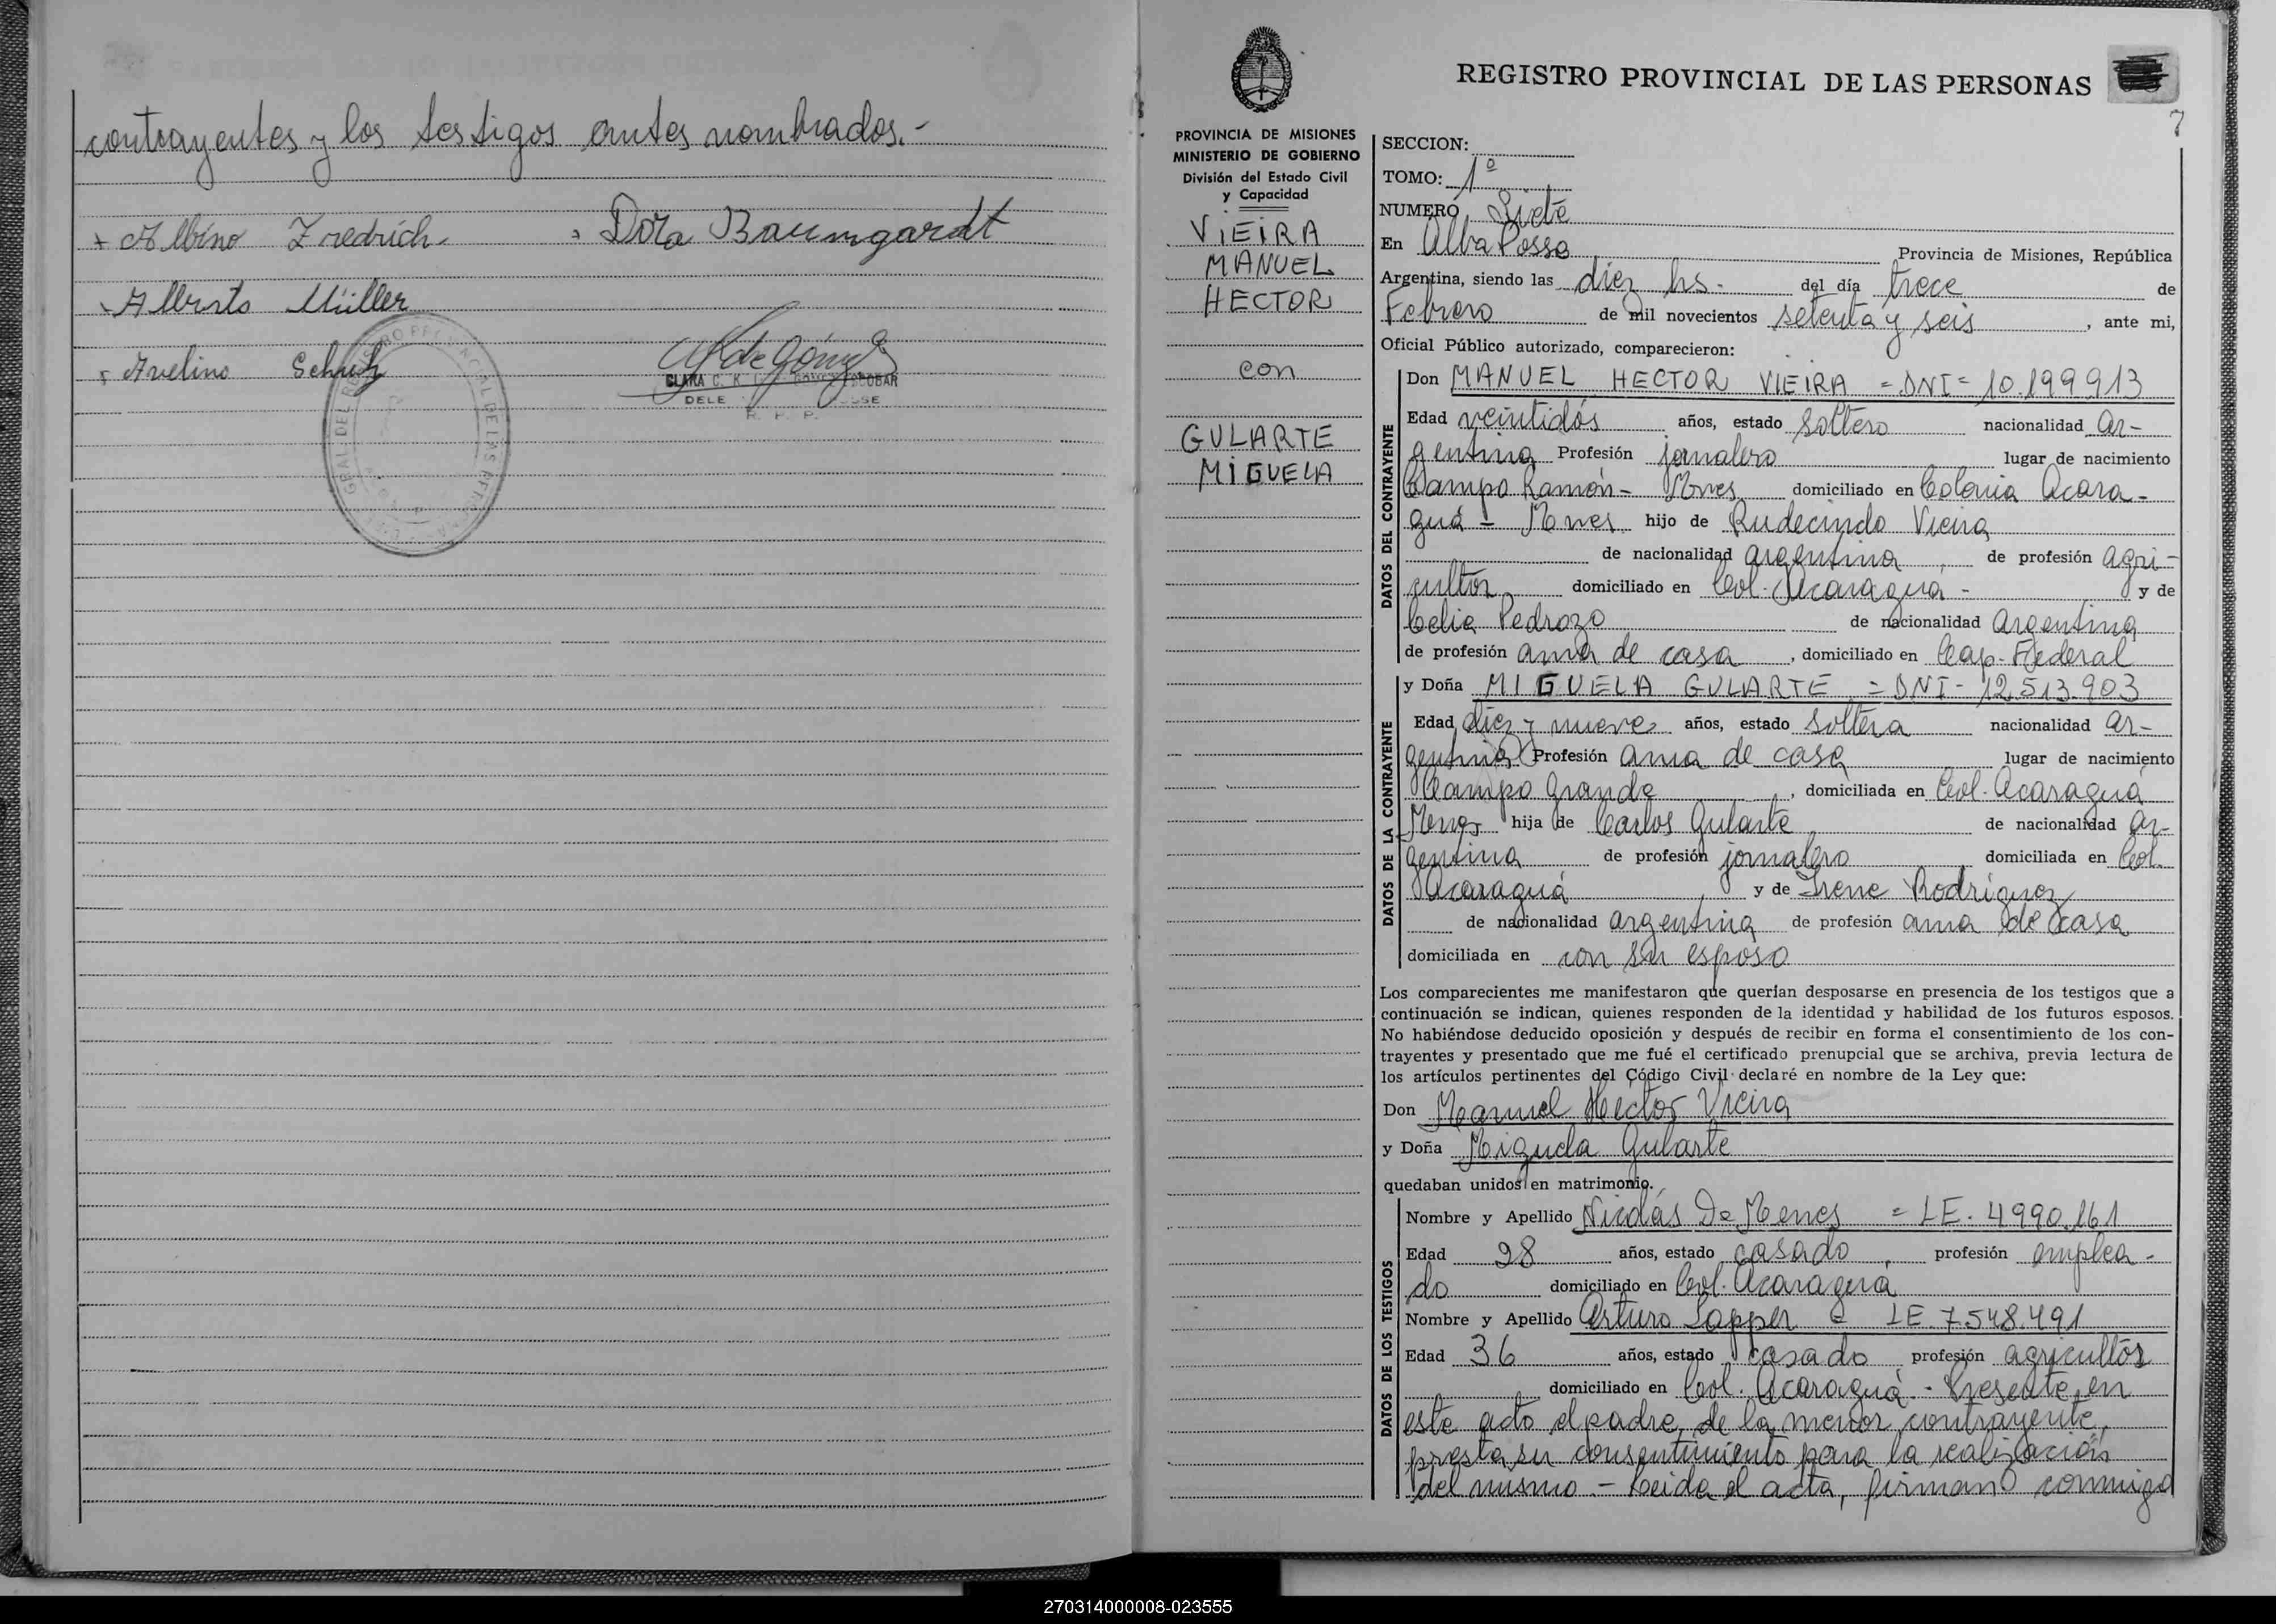 contrayentes y los testigos antes nombrados.-
Albino Fredrich. Dora Baumgardt
Alberto Müller
Avelino Schuh
CLARA C. K.
DELE
R. P. P.
REGISTRO PROVINCIAL DE LAS PERSONAS
7
PROVINCIA DE MISIONES
MINISTERIO DE GOBIERNO
División del Estado Civil
y Capacidad
VIEIRA
MANUEL
HECTOR
con
GULARTE
MIGUELA
SECCION:
TOMO: 1º
NUMERO Siete
En Alba Posse Provincia de Misiones, República
Argentina, siendo las diez hs. del día trece de
Febrero de mil novecientos setenta y seis, ante mi,
Oficial Público autorizado, comparecieron:
DATOS DEL CONTRAYENTE
Don MANUEL HECTOR VIEIRA = DNI = 10.199.913
Edad veintidós años, estado soltero nacionalidad ar-
gentina Profesión jornalero lugar de nacimiento
Campo Ramón - Mnes domiciliado en Colonia Acara-
guá - Mnes hijo de Rudecindo Vieira
de nacionalidad argentina, de profesión agri-
cultor domiciliado en Col. Acaraguá - y de
Celia Pedrozo de nacionalidad argentina
de profesión ama de casa, domiciliado en Cap. Federal
DATOS DE LA CONTRAYENTE
y Doña MIGUELA GULARTE = DNI - 12.513.903
Edad diez y nueve años, estado soltera nacionalidad ar-
gentina Profesión ama de casa lugar de nacimiento
Campo Grande, domiciliada en Col. Acaraguá
Mnes hija de Carlos Gularte de nacionalidad ar-
gentina de profesión jornalero domiciliada en Col.
Acaraguá y de Irene Rodriguez
de nacionalidad argentina de profesión ama de casa
domiciliada en con su esposo
Los comparecientes me manifestaron que querían desposarse en presencia de los testigos que a
continuación se indican, quienes responden de la identidad y habilidad de los futuros esposos.
No habiéndose deducido oposición y después de recibir en forma el consentimiento de los con-
trayentes y presentado que me fué el certificado prenupcial que se archiva, previa lectura de
los artículos pertinentes del Código Civil declaré en nombre de la Ley que:
Don Manuel Hector Vieira
y Doña Miguela Gularte
quedaban unidos en matrimonio.
DATOS DE LOS TESTIGOS
Nombre y Apellido Nicolás De Menes = LE. 4990.161
Edad 28 años, estado casado, profesión emplea-
do domiciliado en Col. Acaraguá
Nombre y Apellido Arturo Sapper = LE 7.548.491
Edad 36 años, estado casado profesión agricultor
domiciliado en Col. Acaraguá - Presente en
este acto el padre de la menor contrayente,
presta su consentimiento para la realización
del mismo.- Leida el acta, firman conmigo
270314000008-023555